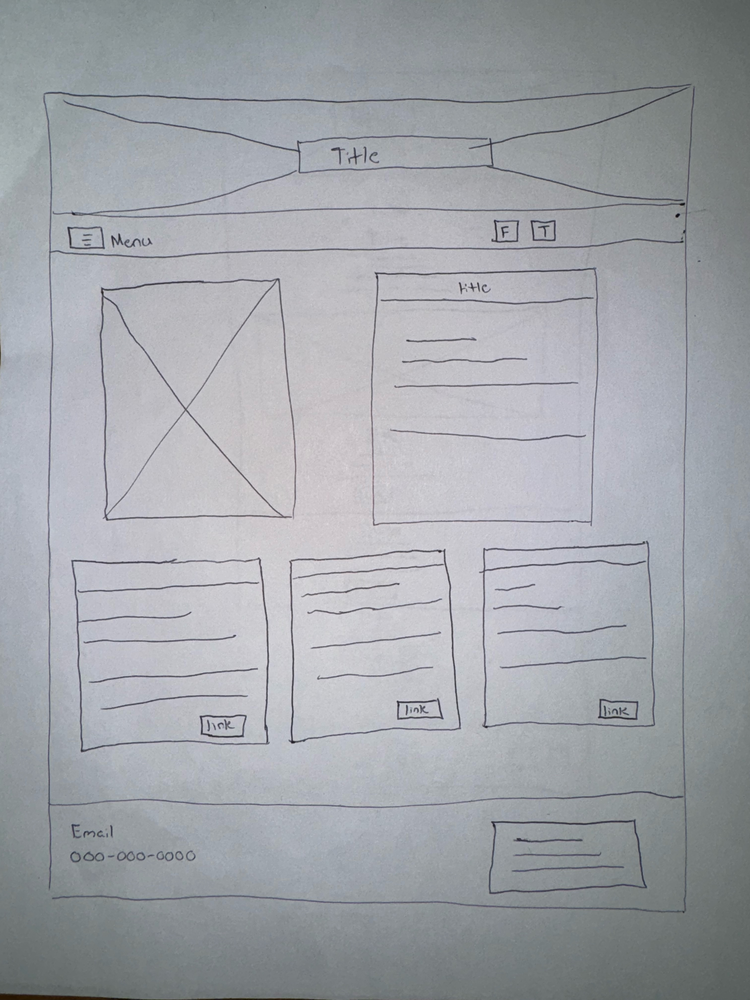 Title
Menu F T
title
link link link
Email
000-000-0000